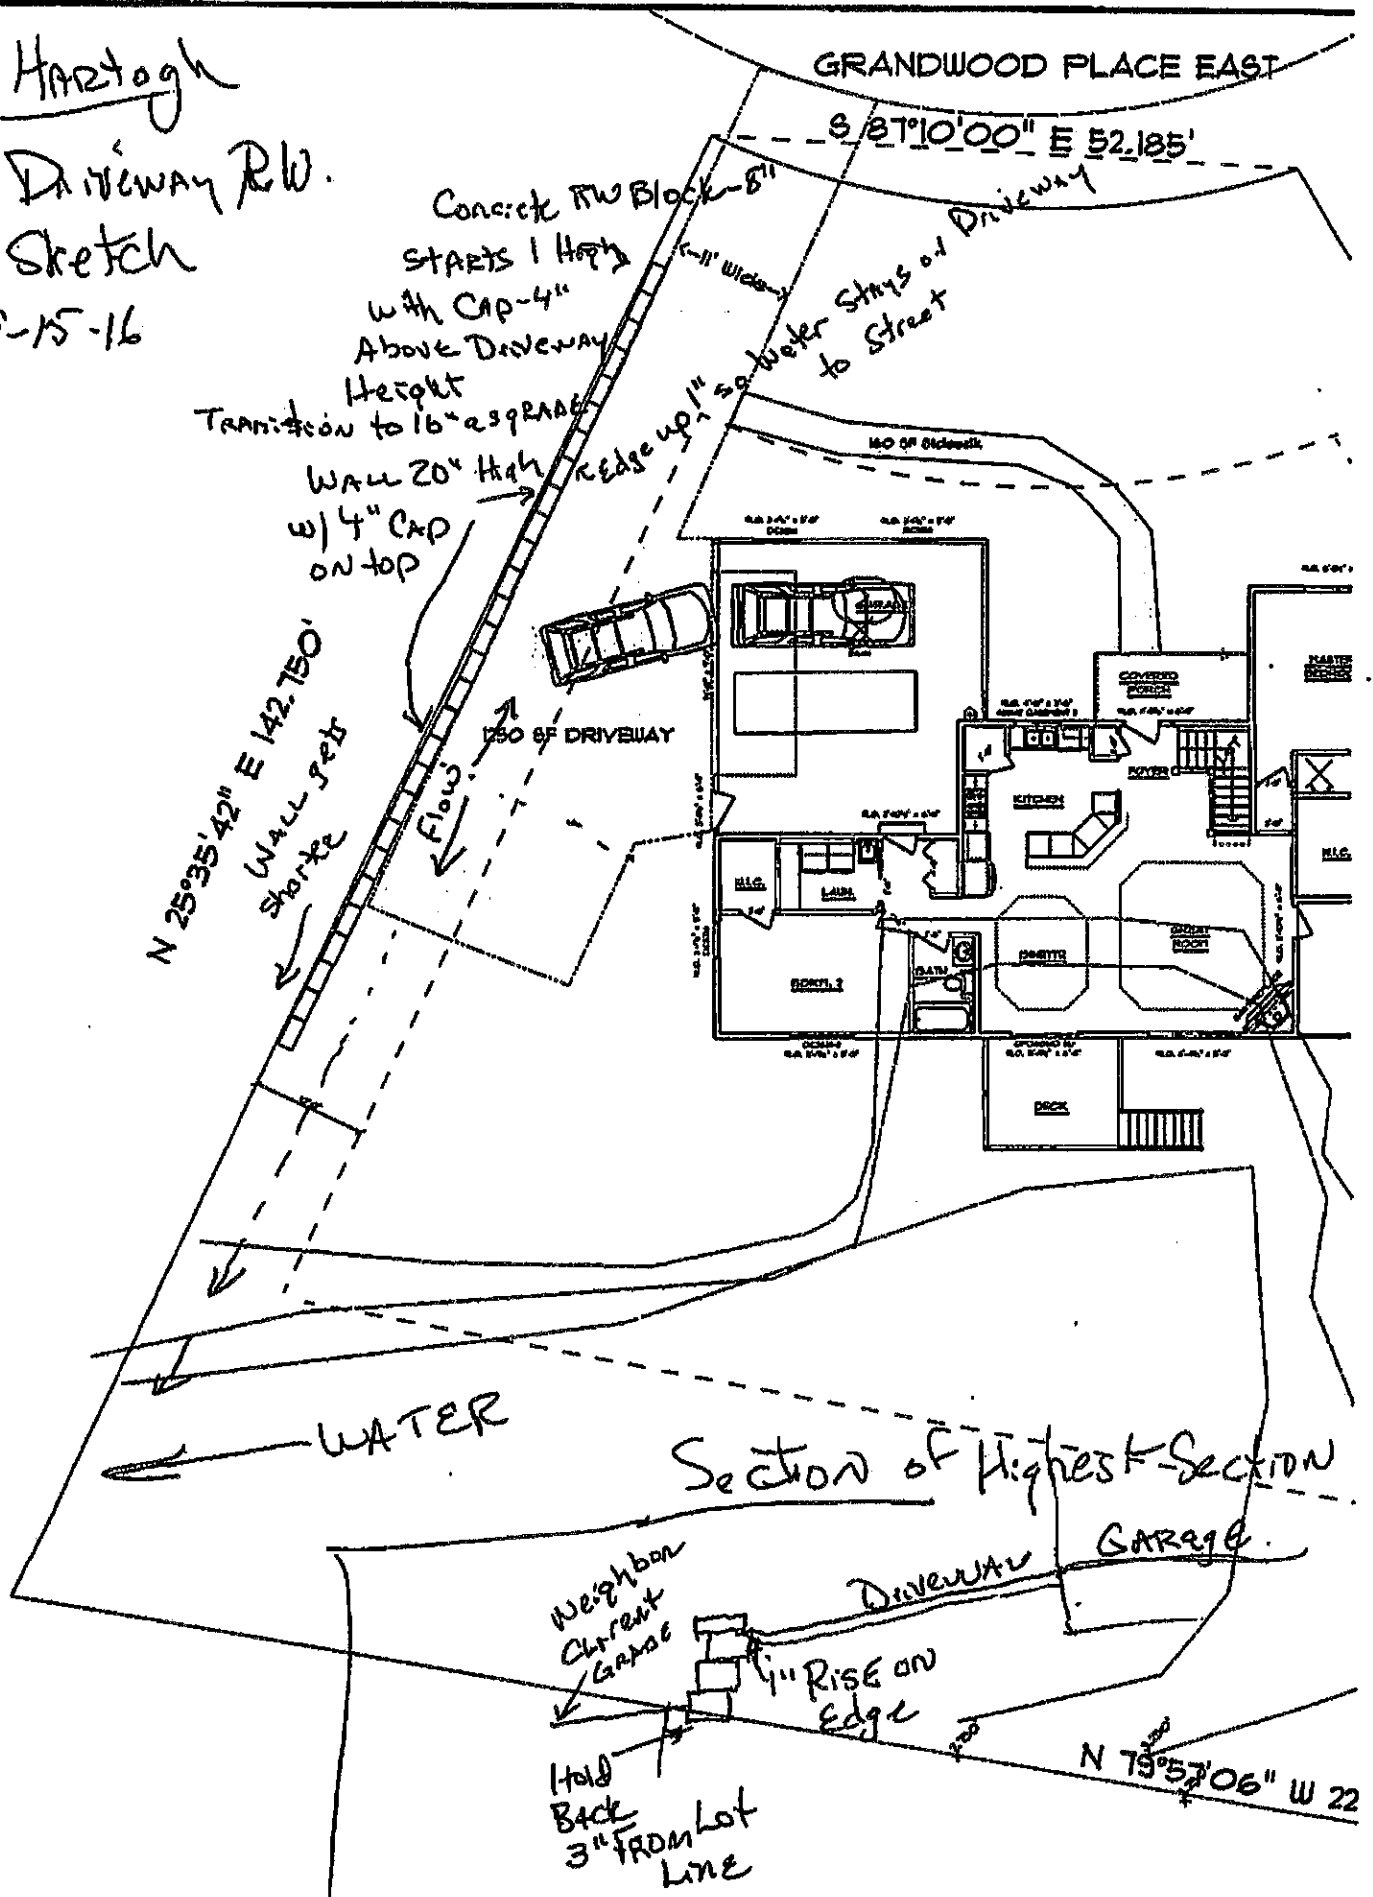 Hartogh
Driveway R.W.
Sketch
-15-16
GRANDWOOD PLACE EAST
S 87°10'00" E 52.185'
Concrete RW Block-8"
Starts 1 High
with Cap-4"
Above Driveway
Height
Transition to 16" as grade
Wall 20" High
w/ 4" Cap
on top
~11' Wide
Edge up 1" so Water Stays on Driveway
to Street
160 SF Sidewalk
N 25°35'42" E 142.750'
Wall gets
Shorter
1250 SF DRIVEWAY
Flow
COVERED
PORCH
MASTER
FOYER
KITCHEN
W.I.C.
LAUN.
W.I.C.
BDRM. 2
BATH
GREAT
ROOM
DECK
WATER
Section of Highest Section
Garage
Driveway
Neighbor
Current
Grade
1" Rise on
Edge
Hold
Back
3" From Lot
Line
N 79°57'06" W 22